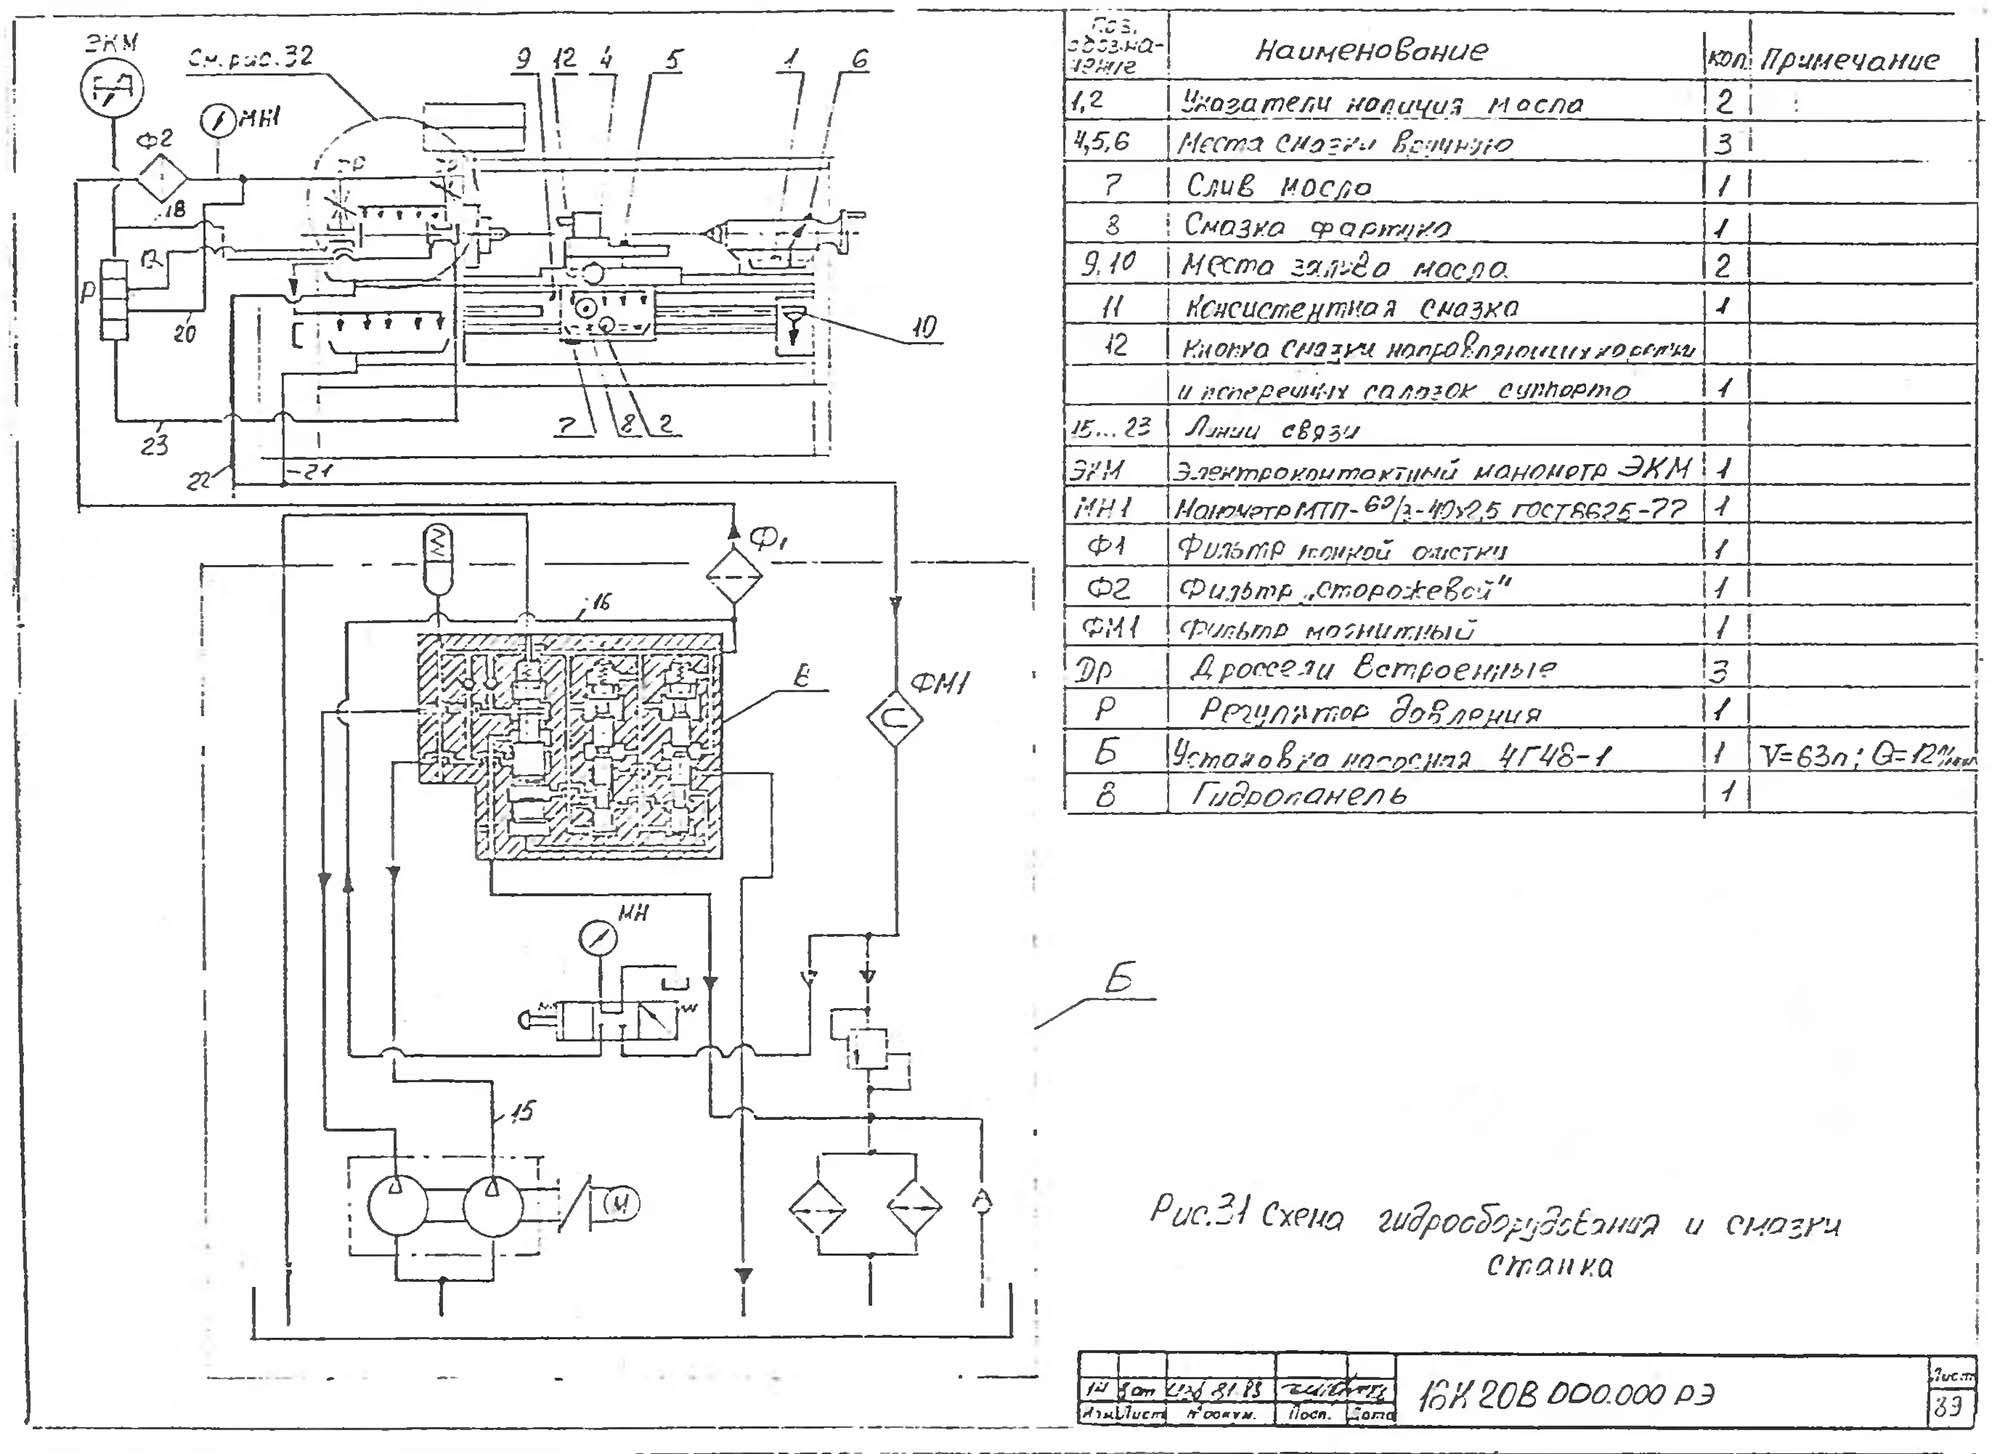 ЭКМ
См.рис.32
9 12 4 5 1 6
МН1
Ф2
18
Р
20
10
23
22
21
7 8 2
Ф1
16
В
ФМ1
МН
Б
15
М
Поз. обозна-чение | Наименование | кол | Примечание
1,2 | Указатели наличия масла | 2
4,5,6 | Места смазки вручную | 3
7 | Слив масла | 1
8 | Смазка фартука | 1
9,10 | Места залива масла | 2
11 | Консистентная смазка | 1
12 | Кнопка смазки направляющих каретки
и поперечных салазок суппорта | 1
15...23 | Линии связи
ЭКМ | Электроконтактный манометр ЭКМ | 1
МН1 | Манометр МТП-60/3-40х2,5 ГОСТ8625-77 | 1
Ф1 | Фильтр тонкой очистки | 1
Ф2 | Фильтр „сторожевой" | 1
ФМ1 | Фильтр магнитный | 1
Др | Дроссели встроенные | 3
Р | Регулятор давления | 1
Б | Установка насосная 4Г48-1 | 1 | V=63л; Q=12
В | Гидропанель | 1
Рис.31 Схема гидрооборудования и смазки
станка
Изм Лист N°докум. Подп. Дата
16К20В 000.000 РЭ
Лист
39